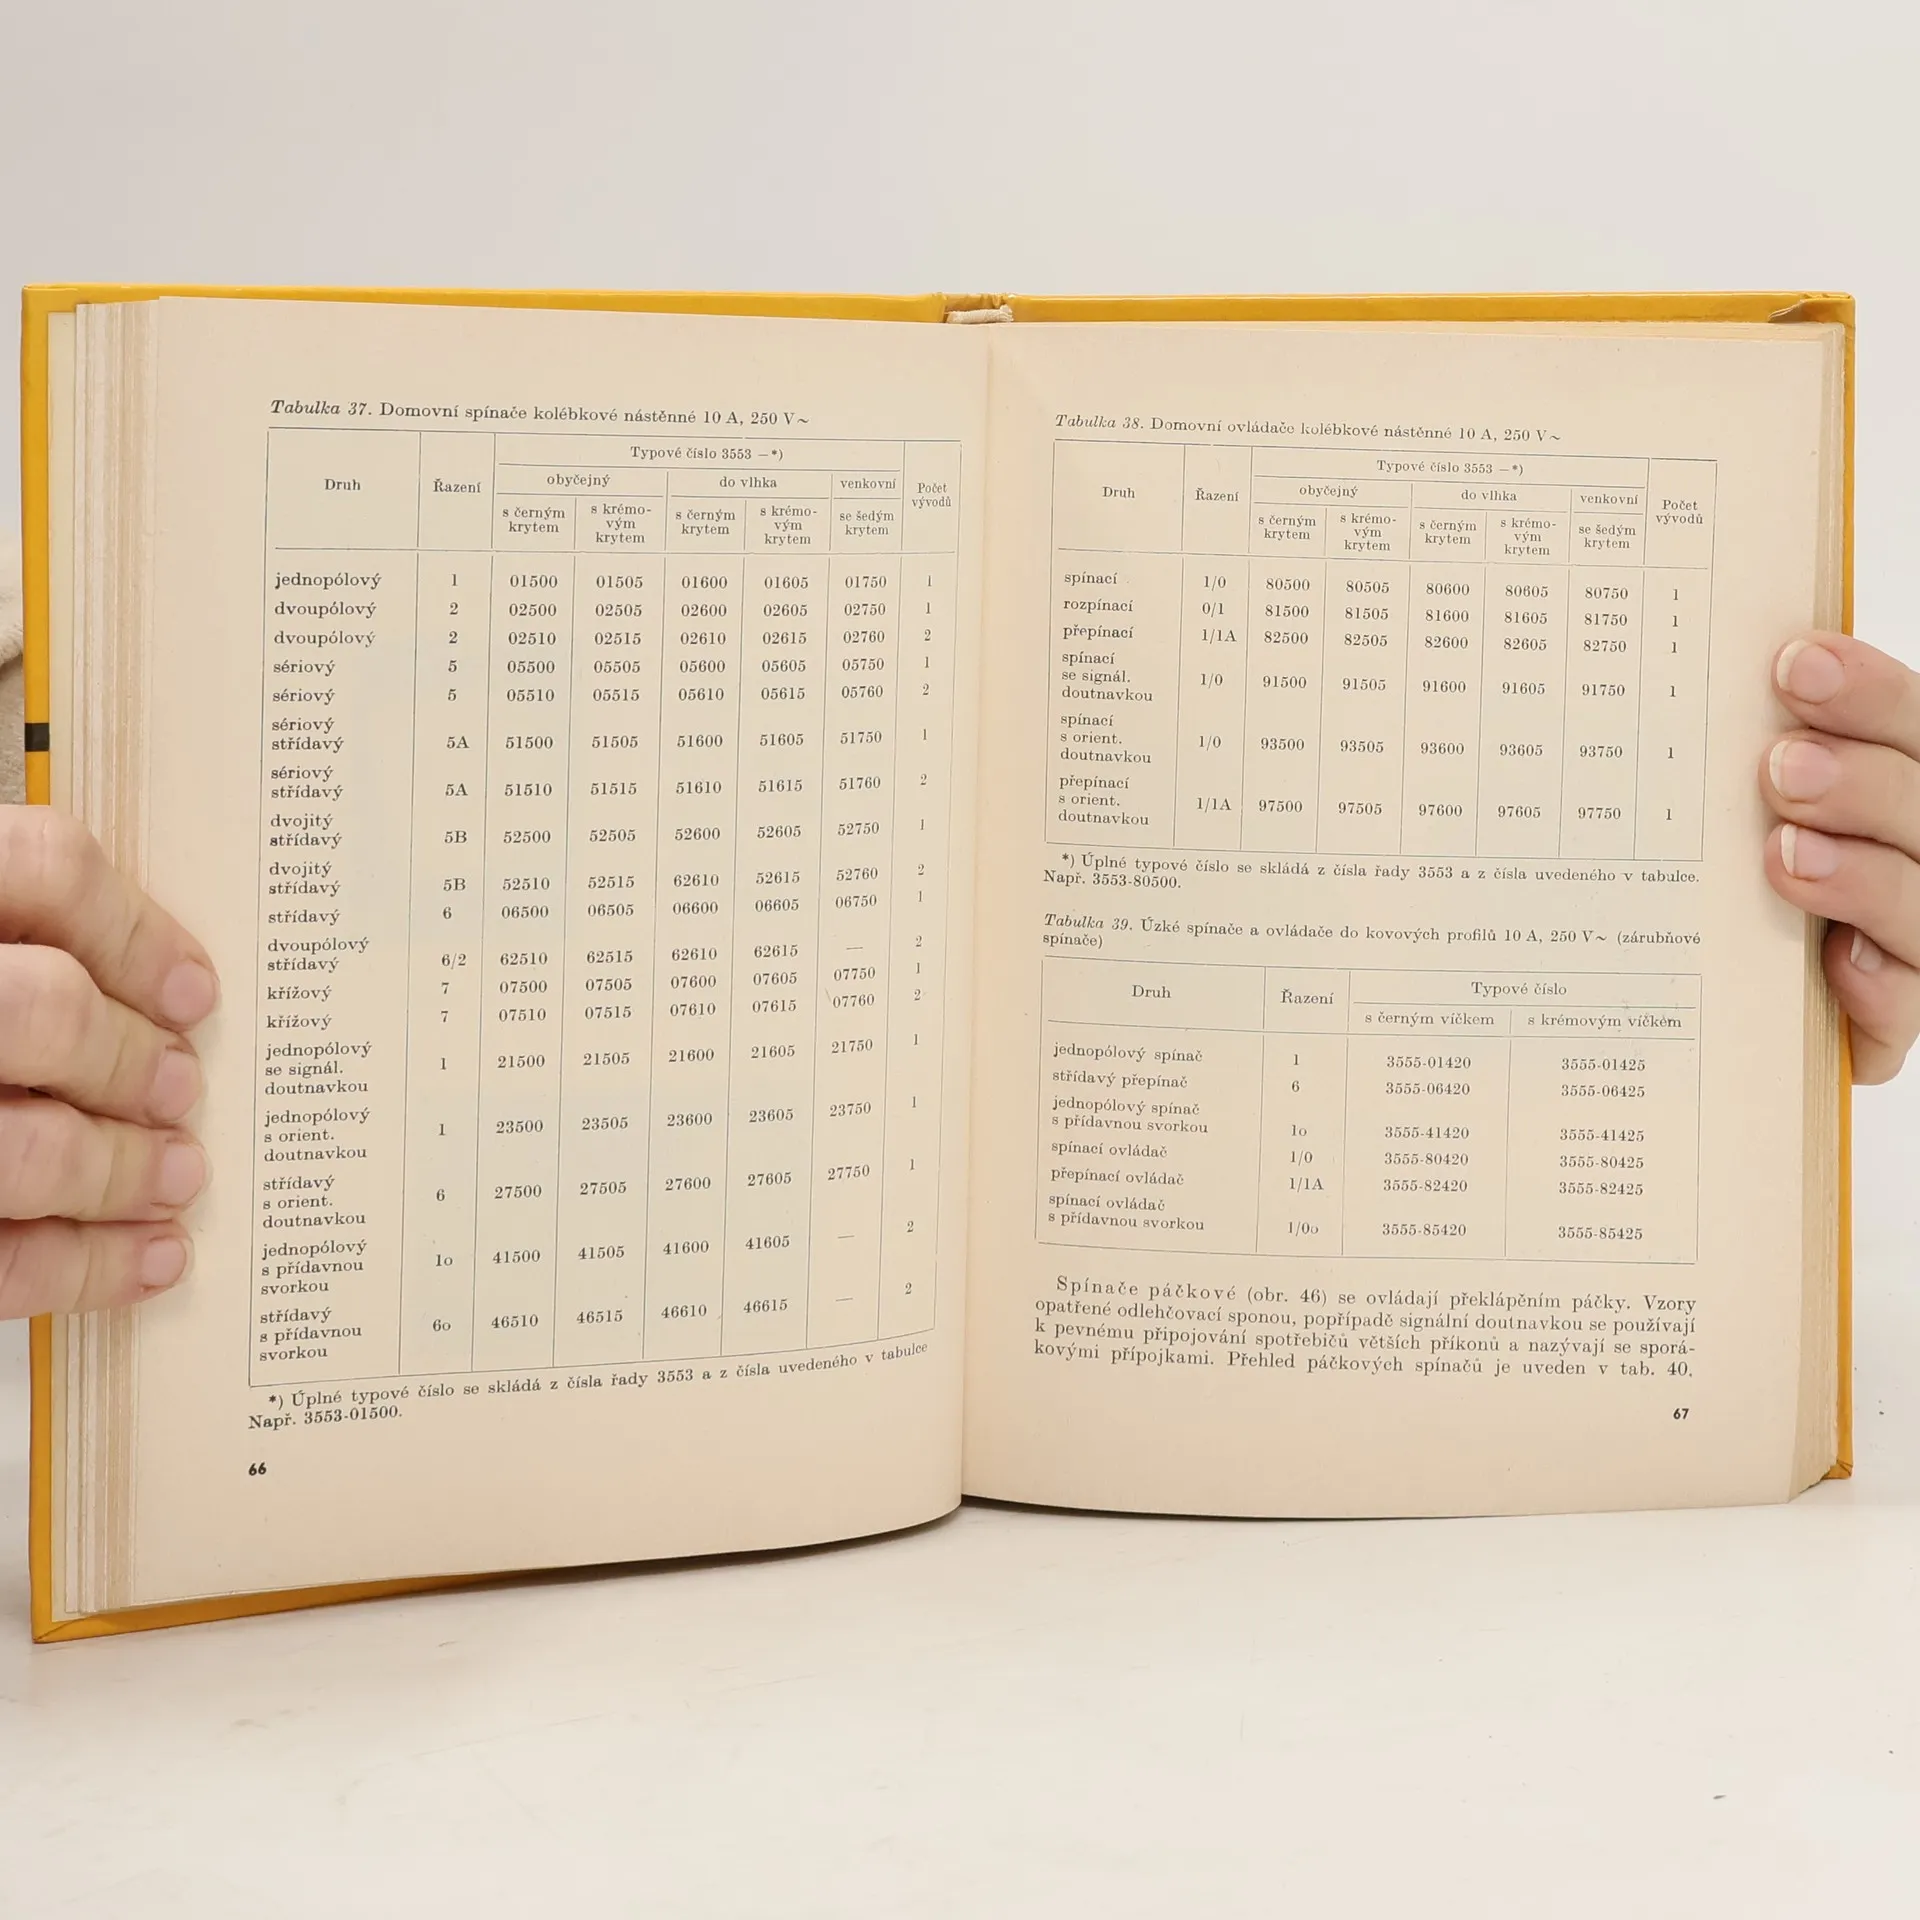 Tabulka 37. Domovní spínače kolébkové nástěnné 10 A, 250 V~
Druh
Řazení
Typové číslo 3553 —*)
Počet
vývodů
obyčejný
do vlhka
venkovní
s černým
krytem
s krémo-
vým
krytem
s černým
krytem
s krémo-
vým
krytem
se šedým
krytem
jednopólový 1 01500 01505 01600 01605 01750 1
dvoupólový 2 02500 02505 02600 02605 02750 1
dvoupólový 2 02510 02515 02610 02615 02760 2
sériový 5 05500 05505 05600 05605 05750 1
sériový 5 05510 05515 05610 05615 05760 2
sériový
střídavý 5A 51500 51505 51600 51605 51750 1
sériový
střídavý 5A 51510 51515 51610 51615 51760 2
dvojitý
střídavý 5B 52500 52505 52600 52605 52750 1
dvojitý
střídavý 5B 52510 52515 62610 52615 52760 2
střídavý 6 06500 06505 06600 06605 06750 1
dvoupólový
střídavý 6/2 62510 62515 62610 62615 — 2
křížový 7 07500 07505 07600 07605 07750 1
křížový 7 07510 07515 07610 07615 07760 2
jednopólový
se signál. 1 21500 21505 21600 21605 21750 1
doutnavkou
jednopólový
s orient. 1 23500 23505 23600 23605 23750 1
doutnavkou
střídavý
s orient. 6 27500 27505 27600 27605 27750 1
doutnavkou
jednopólový
s přídavnou 1o 41500 41505 41600 41605 — 2
svorkou
střídavý
s přídavnou 6o 46510 46515 46610 46615 — 2
svorkou
*) Úplné typové číslo se skládá z čísla řady 3553 a z čísla uvedeného v tabulce
Např. 3553-01500.
66
Tabulka 38. Domovní ovládače kolébkové nástěnné 10 A, 250 V~
Druh
Řazení
Typové číslo 3553 —*)
Počet
vývodů
obyčejný
do vlhka
venkovní
s černým
krytem
s krémo-
vým
krytem
s černým
krytem
s krémo-
vým
krytem
se šedým
krytem
spínací 1/0 80500 80505 80600 80605 80750 1
rozpínací 0/1 81500 81505 81600 81605 81750 1
přepínací 1/1A 82500 82505 82600 82605 82750 1
spínací
se signál. 1/0 91500 91505 91600 91605 91750 1
doutnavkou
spínací
s orient. 1/0 93500 93505 93600 93605 93750 1
doutnavkou
přepínací
s orient. 1/1A 97500 97505 97600 97605 97750 1
doutnavkou
*) Úplné typové číslo se skládá z čísla řady 3553 a z čísla uvedeného v tabulce.
Např. 3553-80500.
Tabulka 39. Úzké spínače a ovládače do kovových profilů 10 A, 250 V~ (zárubňové
spínače)
Druh
Řazení
Typové číslo
s černým víčkem
s krémovým víčkem
jednopólový spínač 1 3555-01420 3555-01425
střídavý přepínač 6 3555-06420 3555-06425
jednopólový spínač
s přídavnou svorkou 1o 3555-41420 3555-41425
spínací ovládač 1/0 3555-80420 3555-80425
přepínací ovládač 1/1A 3555-82420 3555-82425
spínací ovládač
s přídavnou svorkou 1/0o 3555-85420 3555-85425
Spínače páčkové (obr. 46) se ovládají překlápěním páčky. Vzory
opatřené odlehčovací sponou, popřípadě signální doutnavkou se používají
k pevnému připojování spotřebičů větších příkonů a nazývají se sporá-
kovými přípojkami. Přehled páčkových spínačů je uveden v tab. 40.
67